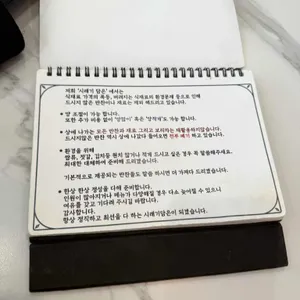 저희 '시래기담은' 에서는
식재료 가격의 폭등, 버려지는 식재료의 환경문제 등으로 인해
드시지 않은 반찬이나 재료는 재외 해드리고 있습니다.
● 양 조절이 가능 합니다.
또한 추가 비용 없이 "양많이" 혹은 "양적게"도 가능 합니다.
● 상에 나가는 모든 반찬과 재료 그리고 보리차는 재활용하지않습니다.
드시지 않은 반찬 역시 상에 나갔다 들어오면 전부 폐기 하고 있습니다.
● 환경을 위해
쌈류, 젓갈, 김치등 원치 않거나 적게 드시고 싶은 경우 꼭 말씀해주세요.
최대한 대체하여 준비해 드리겠습니다.
기본적으로 제공되는 반찬들도 말씀 하시면 더 가져다 드리겠습니다.
● 한상 한상 정성을 다해 준비합니다.
인원이 많아지거나 메뉴가 다양해질 경우 다소 늦어질 수 있으니
여유를 갖고 기다려 주시길 바랍니다.
감사합니다.
항상 정직하고 최선을 다 하는 시래기담은이 되겠습니다.